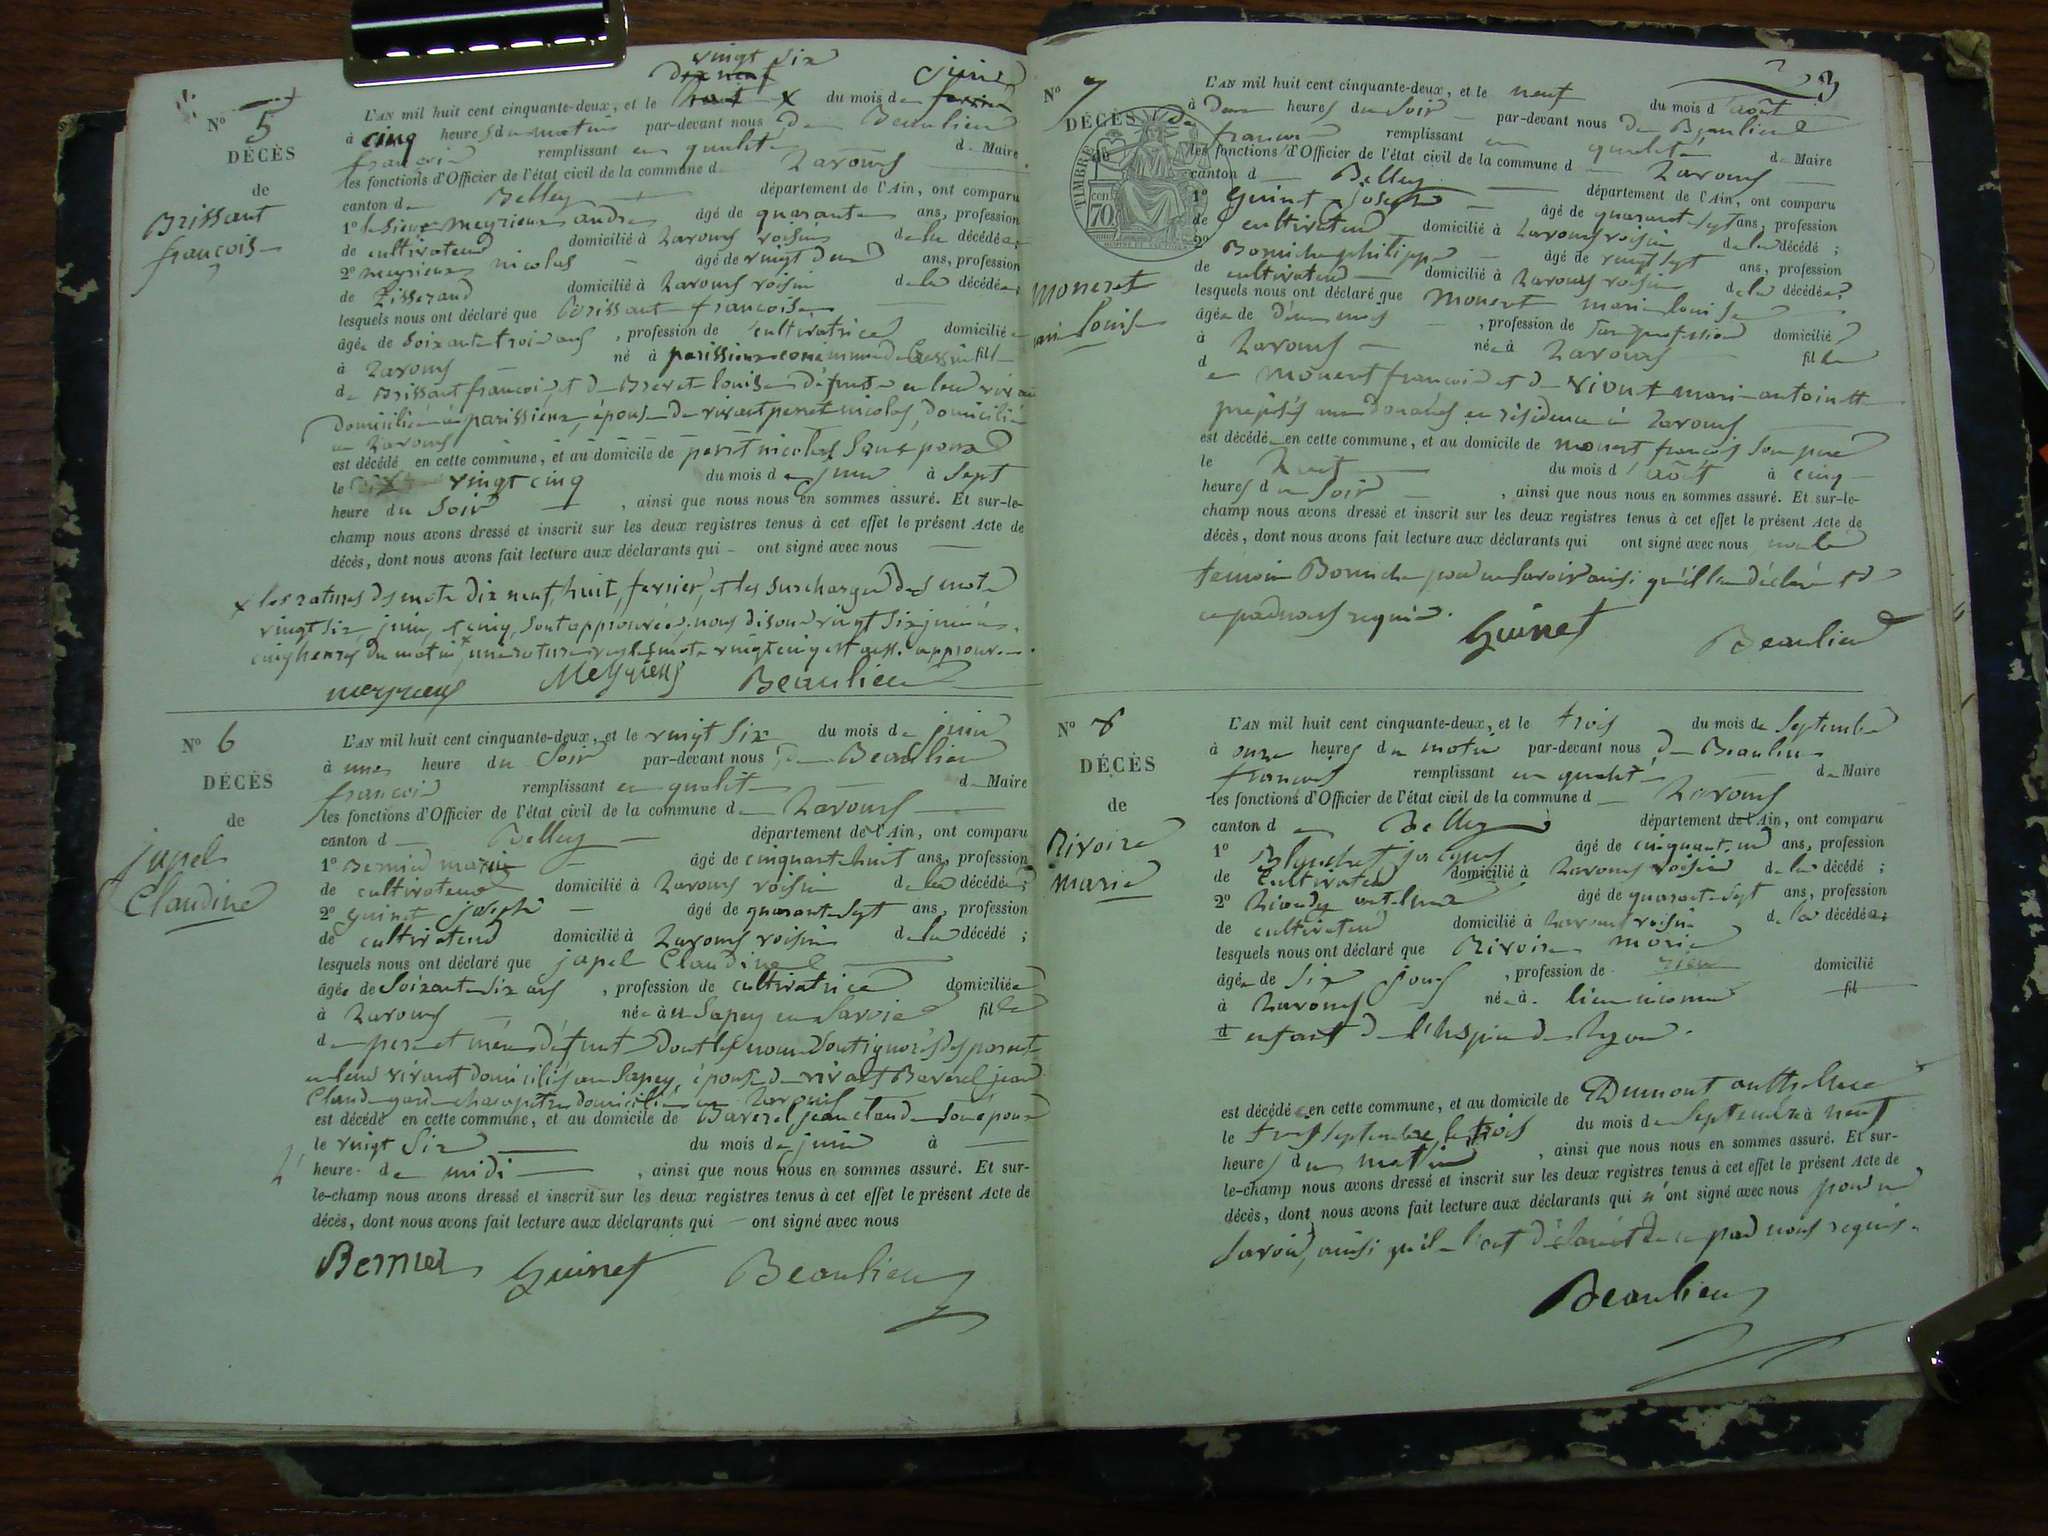 N° 5
DÉCÈS
de
Brissant
françoise
vingt six
dix neuf juin
L'AN mil huit cent cinquante-deux, et le huit x du mois de fevrier
à cinq heures du matin par-devant nous de Beaulieu
françois remplissant en qualité de Maire
les fonctions d'Officier de l'état civil de la commune d
canton de Belley département de l'Ain, ont comparu
1° le sieur meyrieux andré âgé de quarante ans, profession
de cultivateur domicilié à voisin de la décédée;
2° meyrieux nicolas âgé de vingt deux ans, profession
de Tisserand domicilié à voisin de la décédée;
lesquels nous ont déclaré que Brissant françoise
âgée de soixante trois ans, profession de cultivatrice domiciliée
à né à parissieux commune de fille
de Brissant françois, et de louise défunts en leur vivant
domiciliés à parissieux, épouse de vivant perret nicolas, domicilié
a
est décédé en cette commune, et au domicile de perret nicolas son epoux
le vingt cinq du mois de juin à sept
heure du soir, ainsi que nous nous en sommes assuré. Et sur-le-
champ nous avons dressé et inscrit sur les deux registres tenus à cet effet le présent Acte de
décès, dont nous avons fait lecture aux déclarants qui ont signé avec nous
x les ratures des mots dix neuf, huit, fevrier, et les surcharges des mots
vingt six, juin, et cinq, sont approuvées, nous disons vingt six juin à
cinq heures du matin, une rature sur les mots vingt cinq est aussi approuvée.
meyrieux Meyrieux Beaulieu
N° 6
DÉCÈS
de
japel
Claudine
L'AN mil huit cent cinquante-deux, et le vingt six du mois de juin
à une heure du soir par-devant nous de Beaulieu
françois remplissant en qualité de Maire
les fonctions d'Officier de l'état civil de la commune d
canton d Belley département de l'Ain, ont comparu
1° Bernier âgé de cinquante huit ans, profession
de cultivateur domicilié à voisin de la décédée;
2° guinet joseph âgé de quarante sept ans, profession
de cultivateur domicilié à voisin de la décédé;
lesquels nous ont déclaré que japel Claudine
âgée de soixante six ans, profession de cultivatrice domiciliée
à née à au Sapey en Savoie fille
de pere et mère défunts dont les noms sont ignorés des parents
en leur vivant domiciliés au Sapey, épouse de vivant Baverel jean
Claude garde champêtre domicilié a
est décédé en cette commune, et au domicile de Baverel jean claude son epoux
le vingt six du mois de juin à
heure de midi, ainsi que nous nous en sommes assuré. Et sur-
le-champ nous avons dressé et inscrit sur les deux registres tenus à cet effet le présent Acte de
décès, dont nous avons fait lecture aux déclarants qui ont signé avec nous
Bernier Guinet Beaulieu
23
N° 7
DÉCÈS de
TIMBRE
70
moneret
marie louise
L'AN mil huit cent cinquante-deux, et le neuf du mois d août
à deux heures du soir par-devant nous de Beaulieu
françois remplissant en qualité de Maire
les fonctions d'Officier de l'état civil de la commune d
canton d Belley département de l'Ain, ont comparu
1° Guinet joseph âgé de quarante sept ans, profession
de cultivateur domicilié à voisin de la décédé;
2° philippe âgé de vingt sept ans, profession
de cultivateur domicilié à voisin de la décédée;
lesquels nous ont déclaré que marie louise
âgée de deux mois, profession de sans profession domicilié
à née à fille
de françois et de marie antoinette
en résidence à
est décédé en cette commune, et au domicile de françois son père
le huit du mois d août à cinq
heures du soir, ainsi que nous nous en sommes assuré. Et sur-le-
champ nous avons dressé et inscrit sur les deux registres tenus à cet effet le présent Acte de
décès, dont nous avons fait lecture aux déclarants qui ont signé avec nous non le
temoin pour ne savoir ainsi qu'il l'a déclaré et de
ce par nous requis.
Guinet Beaulieu
N° 8
DÉCÈS
de
Rivoire
marie
L'AN mil huit cent cinquante-deux, et le trois du mois de septembre
à onze heures du matin par-devant nous de Beaulieu
françois remplissant en qualité de Maire
les fonctions d'Officier de l'état civil de la commune d
canton d Belley département de l'Ain, ont comparu
1° jacques âgé de cinquante un ans, profession
de cultivateur domicilié à voisin de la décédé;
2° antelme âgé de quarante sept ans, profession
de cultivateur domicilié à voisin de la décédée;
lesquels nous ont déclaré que Rivoire marie
âgée de six jours, profession de rien domicilié
à née à lieu inconnu fil
d enfant de l'hospice de Lyon.
est décédée en cette commune, et au domicile de Dumont anthelme
le trois septembre le trois du mois de septembre à neuf
heures du matin, ainsi que nous nous en sommes assuré. Et sur-
le-champ nous avons dressé et inscrit sur les deux registres tenus à cet effet le présent Acte de
décès, dont nous avons fait lecture aux déclarants qui n'ont signé avec nous pour ne
savoir, ainsi qu'ils l'ont déclaré et de ce par nous requis.
Beaulieu